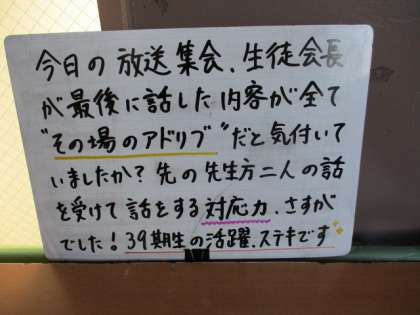 今日の放送集会、生徒会長
が最後に話した内容が全て
"その場のアドリブ"だと気付いて
いましたか？先の先生方二人の話
を受けて話をする対応力、さすが
でした！39期生の活躍、ステキです